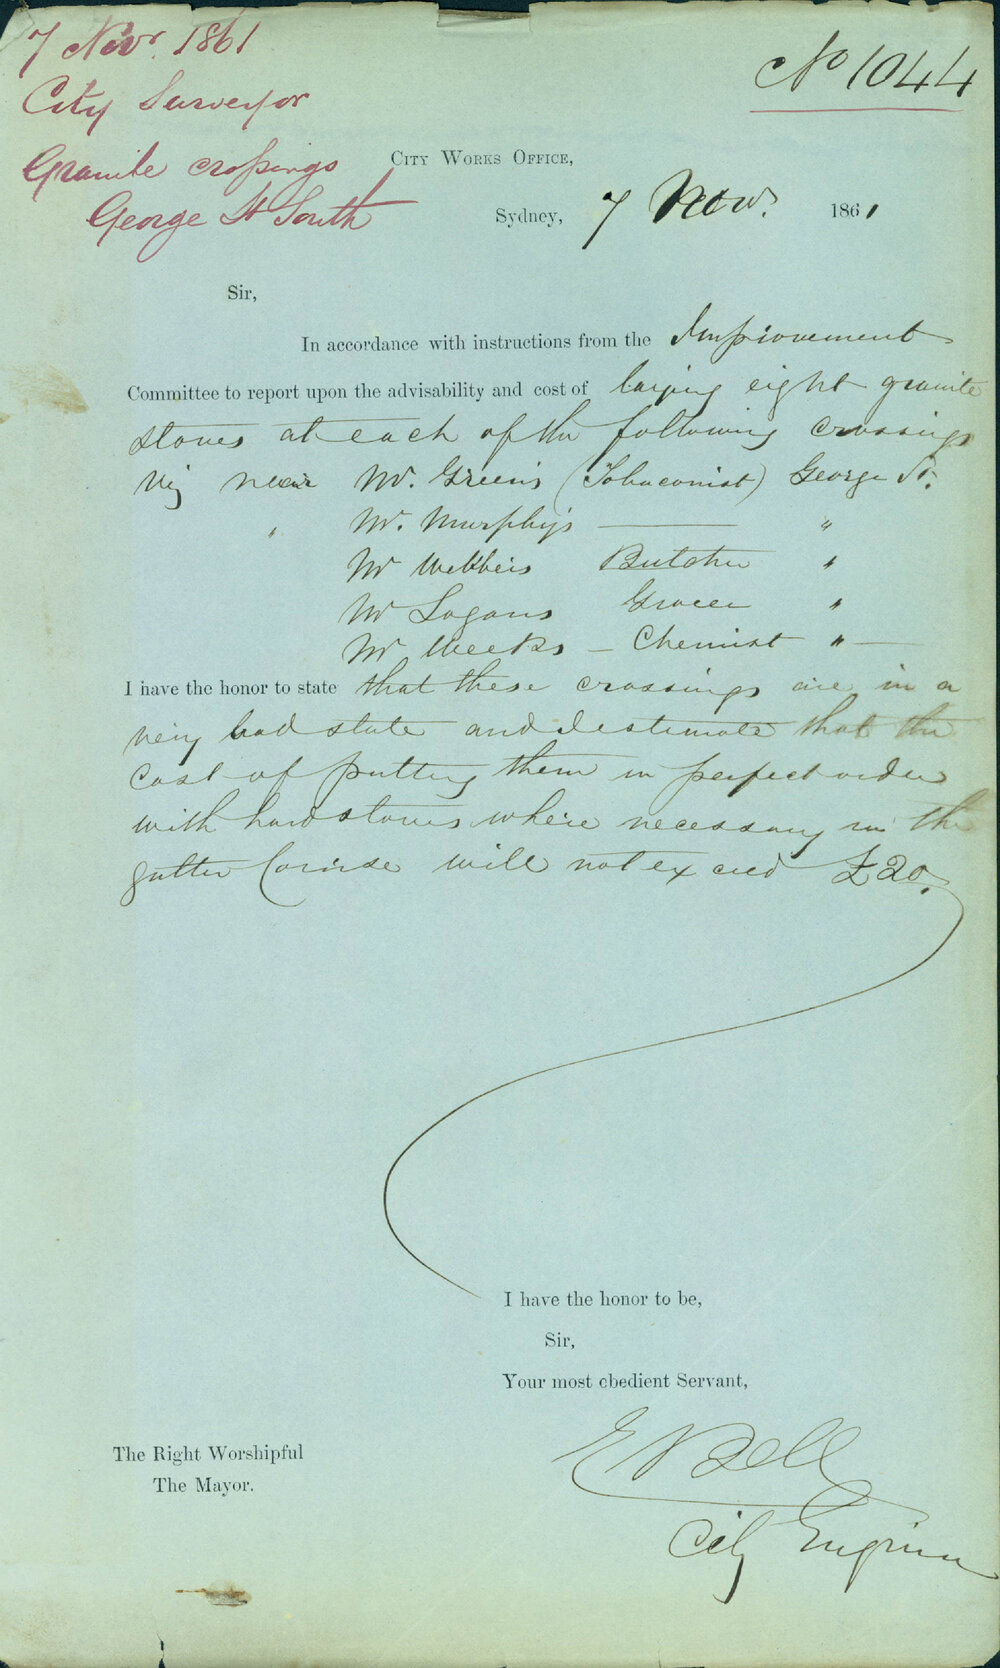 7 Novr. 1861
City Surveyor
Granite crossings
George St South
No 1044
City Works Office,
Sydney, 7 Novr. 1861
Sir,
In accordance with instructions from the Improvement
Committee to report upon the advisability and cost of laying eight granite
stones at each of the following crossings
viz near Mr. Greens (Tobaconist) George St.
" Mr. Murphy's — "
Mr Webbers Butcher "
Mr Logans Grocer "
Mr Weeks – Chemist " —
I have the honor to state that these crossings are in a
very bad state and I estimate that the
cost of putting them in perfect order
with hard stones where necessary in the
gutter Course will not exceed £20.
I have the honor to be,
Sir,
Your most obedient Servant,
E Bell
City Engineer
The Right Worshipful
The Mayor.